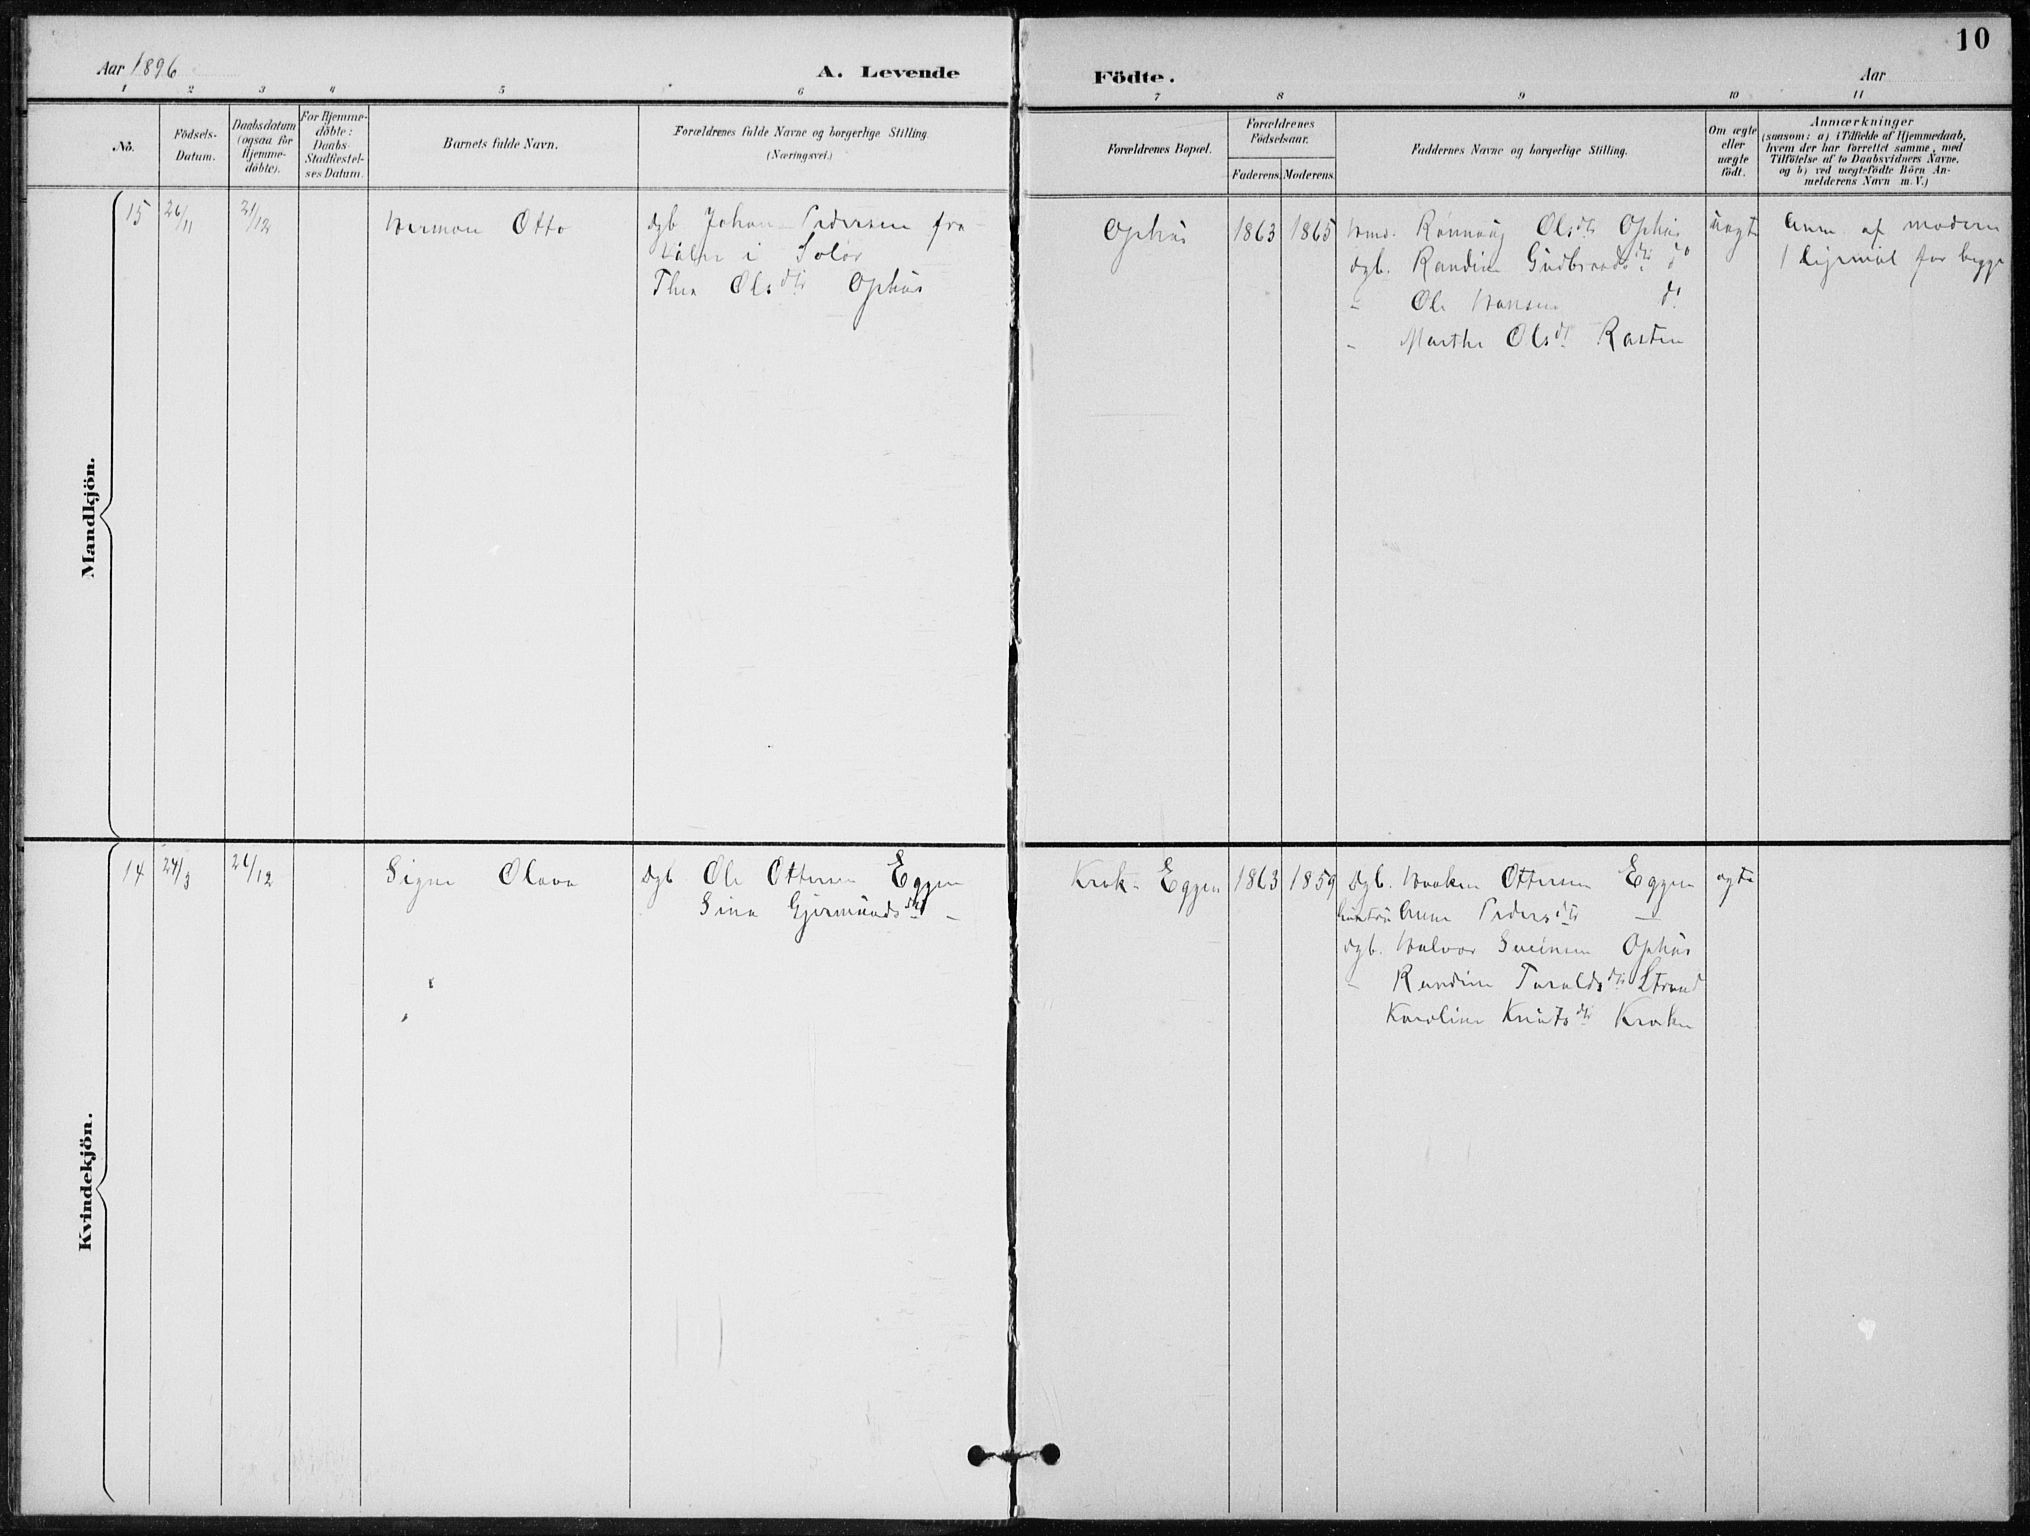 10
Aar 1896
A. Levende
Födte.
Aar
1 2 3 4 5 6 7 8 9 10 11
No.
Födsels-Datum.
Daabsdatum (ogsaa for Hjemme-döbte).
For Hjemme-döbte: Daabs-Stadfæstel-ses Datum.
Barnets fulde Navn.
Forældrenes fulde Navne og borgerlige Stilling. (Næringsvei.)
Forældrenes Bopæl.
Forældrenes Födselsaar.
Faderens. Moderens.
Faddernes Navne og borgerlige Stilling.
Om ægte eller uægte födt.
Anmærkninger
(saasom: a) i Tilfælde af Hjemmedaab, hvem der har forrettet samme, med Tilföielse af to Daabsvidners Navne, og b) ved uægtefödte Börn An-melderens Navn m. V.)
Mandkjön.
15 26/11 21/12 Herman Otto
dgb Johan Pedersen fra
Våler i Solør
Thea Olsdtr Ophus
Ophus 1863 1865
Hmd. Rønnaug Olsdtr Ophus
dgb. Randine Gudbrandsdtr do
- Ole Hansen do
- Marthe Olsdr Rasten
uægte
Anm. af moderen
1 leiermål for begge
Kvindekjön.
14 24/3 26/12 Signe Olava
dgb Ole Ottersen Eggen
Sina Gjermundsdtr -
Krok-Eggen 1863 1859
dgb. Haaken Ottersen Eggen
hustru Anne Pedersdtr -
dgb. Halvor Sveinsen Ophus
- Randine Taraldsdtr Strand
Karoline Knutsdtr Kroken
ægte